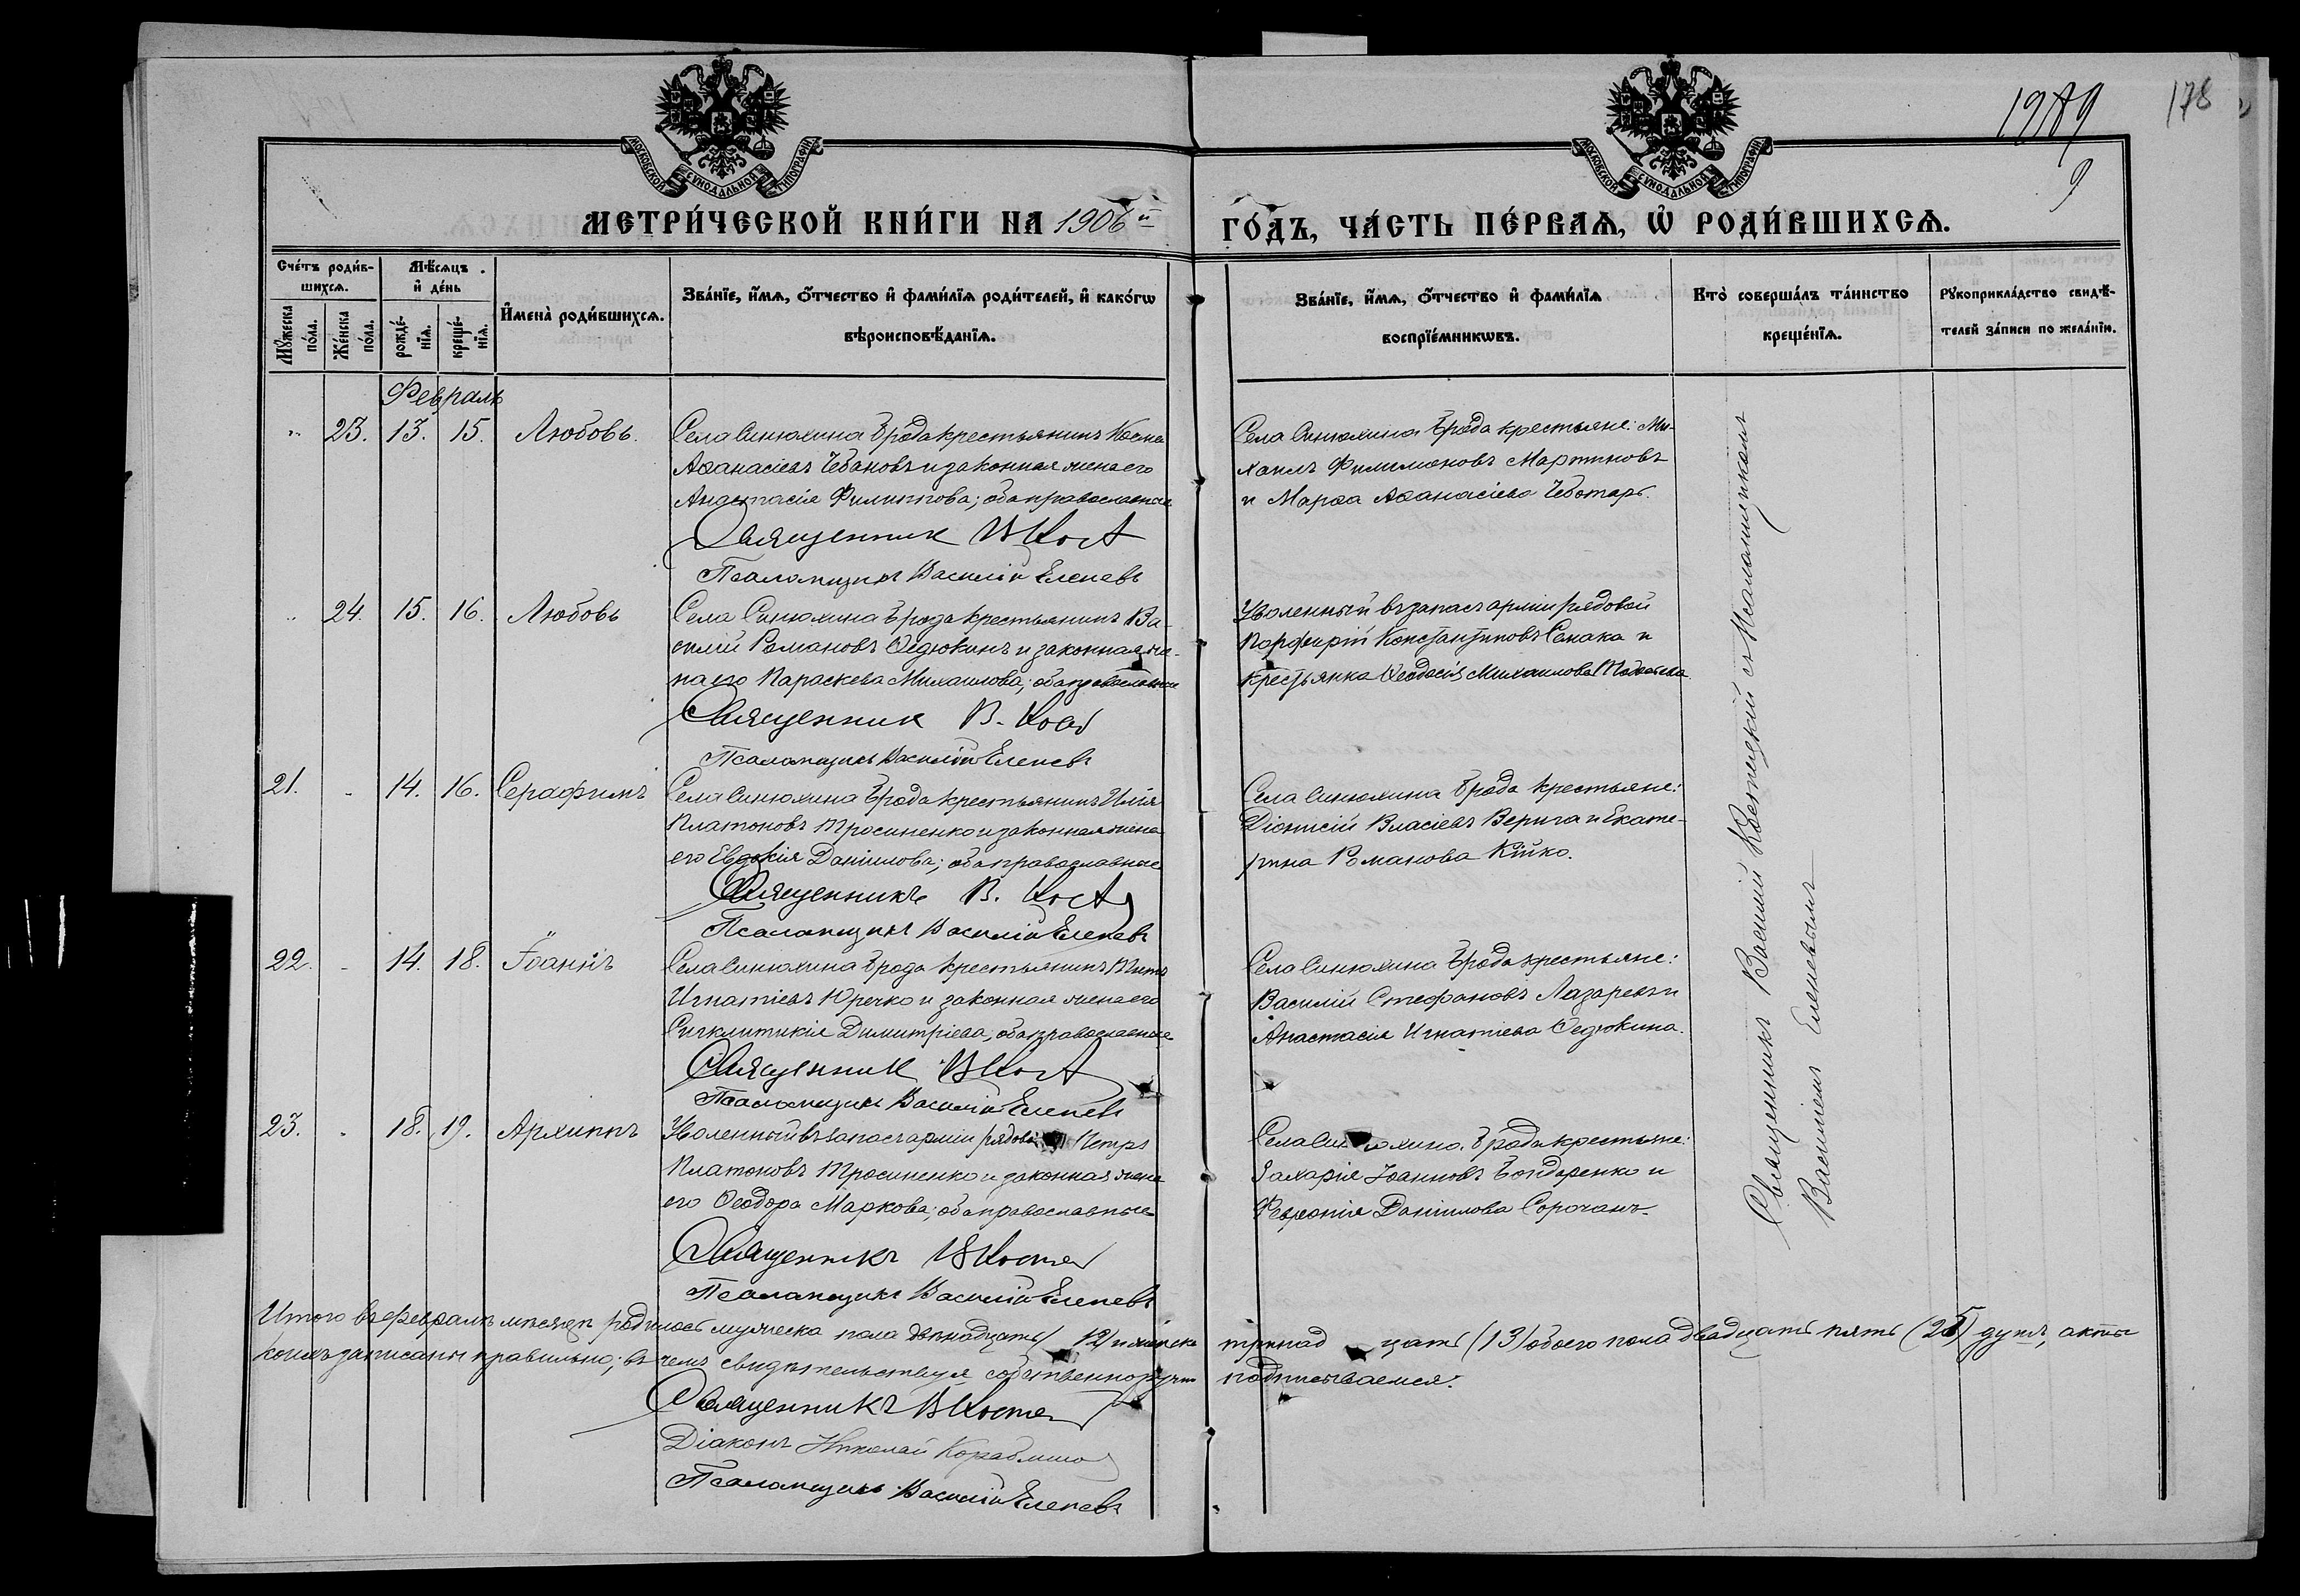 1989
178
9
МОСКОВСКОЙ СѴНОДАЛЬНОЙ ТИПОГРАФІИ
МОСКОВСКОЙ СѴНОДАЛЬНОЙ ТИПОГРАФІИ
МЕТРИ́ЧЕСКОЙ КНИ́ГИ НА 1906й
ГО́ДЪ, ЧА́СТЬ ПЕ́РВАѦ, Ѡ РОДИ́ВШИХСѦ.
Сче́тъ роди́в-
шихсѧ.
Мꙋ́жеска по́ла.
Же́нска по́ла.
Мѣ́сѧцъ
и҆ де́нь
рожде́-
нїѧ.
креще́-
нїѧ.
И҆мена̀ роди́вшихсѧ.
Зва́нїе, и҆́мѧ, ѻ҆́тчество и҆ фами́лїѧ роди́телей, и҆ како́гѡ
вѣроисповѣ́данїѧ.
Зва́нїе, и҆́мѧ, ѻ҆́тчество и҆ фами́лїѧ
воспрїе́мникѡвъ.
Кто̀ соверша́лъ та́инство
креще́нїѧ.
Рꙋкоприкла́дство свидѣ́-
телей за́писи по жела́нїю.
Февраль
" 23. 13. 15. Любовь.
Села Синюхина Брода крестьянинъ Косма
Аѳанасіевъ Чебановъ и законная жена его
Анастасія Филиппова; оба православные
Священник В Кост
Псаломщикъ Василій Еленевъ
Села Синюхина Брода крестьяне: Ми-
хаилъ Филимоновъ Мартиновъ
и Марѳа Аѳанасіева Чеботарь.
" 24. 15. 16. Любовь
Села Синюхина Брода крестьянинъ Ва-
силій Романовъ Ѳедюкинъ и законная же-
на его Параскева Михаилова; оба православные
Священник В. Кост
Псаломщикъ Василій Еленевъ
Уволенный въ запасъ арміи рядовой
Порфирій Константиновъ Сенака и
крестьянка Ѳеодосія Михаилова
21. - 14. 16. Серафимъ
Села Синюхина Брода крестьянинъ Илія
Платоновъ Тросиненко и законная жена
его Евдокія Даніилова; оба православные
Священникъ В. Кост
Псаломщикъ Василій Еленевъ
Села Синюхина Брода крестьяне:
Діонисій Власіевъ Верига и Екате-
рина Романова Кійко.
22. - 14. 18. Іоаннъ
Села Синюхина Брода крестьянинъ Титъ
Игнатіевъ Юречко и законная жена его
Синклитикія Димитріева; оба православные
Священник В Кост
Псаломщикъ Василій Еленевъ
Села Синюхина Брода крестьяне:
Василій Стефановъ Лазаревъ и
Анастасія Игнатіева Ѳедюкина.
23. - 18. 19. Архиппъ
Уволенный въ запасъ арміи рядовой Петръ
Платоновъ Тросиненко и законная жена
его Ѳеодора Маркова; оба православные
Священникъ В Костец
Псаломщикъ Василій Еленевъ
Села Синюхина Брода крестьяне:
Захарія Іоанновъ Бондаренко и
Февронія Даніилова Сорочанъ.
Священникъ Василій Костецкій съ Псаломщикомъ
Василіемъ Еленевымъ
Итого въ февралѣ мѣсяцѣ родилось мужеска пола двѣнадцать (12) и женска тринадцать (13) обоего пола двадцать пять (25) душъ, акты
коихъ записаны правильно; въ чемъ свидѣтельствуя собственноручно подписываемся:
Священникъ В Костец
Діаконъ Николай
Псаломщикъ Василій Еленевъ